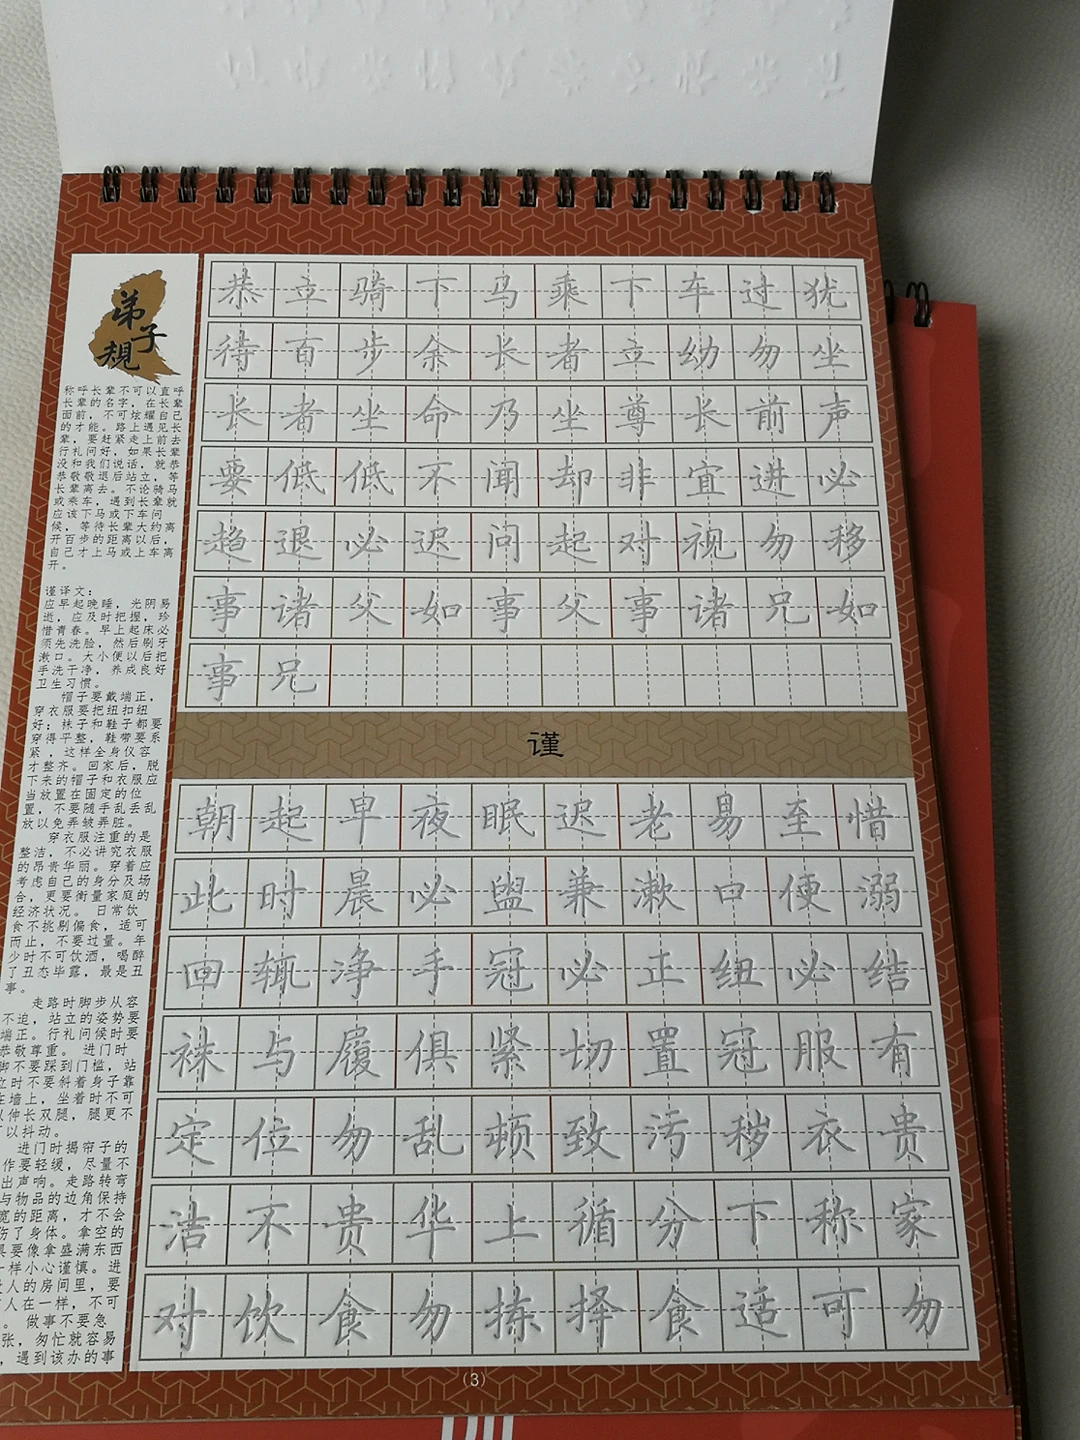 弟子规
称呼长辈不可以直呼
长辈的名字，在长辈
面前，不可炫耀自己
的才能。路上遇见长
辈，要赶紧走上前去
行礼问好，如果长辈
没和我们说话，就恭
恭敬敬退后站立，等
长辈离去。不论骑马
或乘车，遇到长辈就
应该下马或下车问
候，等待长辈大约离
开百步的距离以后，
自己才上马或上车离
开。
谨译文：
应早起晚睡，光阴易
逝，应及时把握，珍
惜青春。早上起床必
须先洗脸，然后刷牙
漱口。大小便以后把
手洗干净，养成良好
卫生习惯。
帽子要戴端正，
穿衣服要把纽扣纽
好；袜子和鞋子都要
穿得平整，鞋带要系
紧，这样全身仪容
才整齐。回家后，脱
下来的帽子和衣服应
当放置在固定的位
置，不要随手乱丢乱
放以免弄皱弄脏。
穿衣服注重的是
整洁，不必讲究衣服
的昂贵华丽。穿着应
考虑自己的身分及场
合，更要衡量家庭的
经济状况。日常饮
食不挑剔偏食，适可
而止，不要过量。年
少时不可饮酒，喝醉
了丑态毕露，最是丑
事。
走路时脚步从容
不迫，站立的姿势要
端正。行礼问候时要
恭敬尊重。进门时
脚不要踩到门槛，站
立时不要斜着身子靠
在墙上，坐着时不可
以伸长双腿，腿更不
可以抖动。
进门时揭帘子的
作要轻缓，尽量不
出声响。走路转弯
与物品的边角保持
宽的距离，才不会
伤了身体。拿空的
具要像拿盛满东西
一样小心谨慎。进
人的房间里，要
人在一样，不可
。做事不要急
张，匆忙就容易
，遇到该办的事
恭立骑下马乘下车过犹
待百步余长者立幼勿坐
长者坐命乃坐尊长前声
要低低不闻却非宜进必
趋退必迟问起对视勿移
事诸父如事父事诸兄如
事兄
谨
朝起早夜眠迟老易至惜
此时晨必盥兼漱口便溺
回辄净手冠必正纽必结
袜与履俱紧切置冠服有
定位勿乱顿致污秽衣贵
洁不贵华上循分下称家
对饮食勿拣择食适可勿
（3）